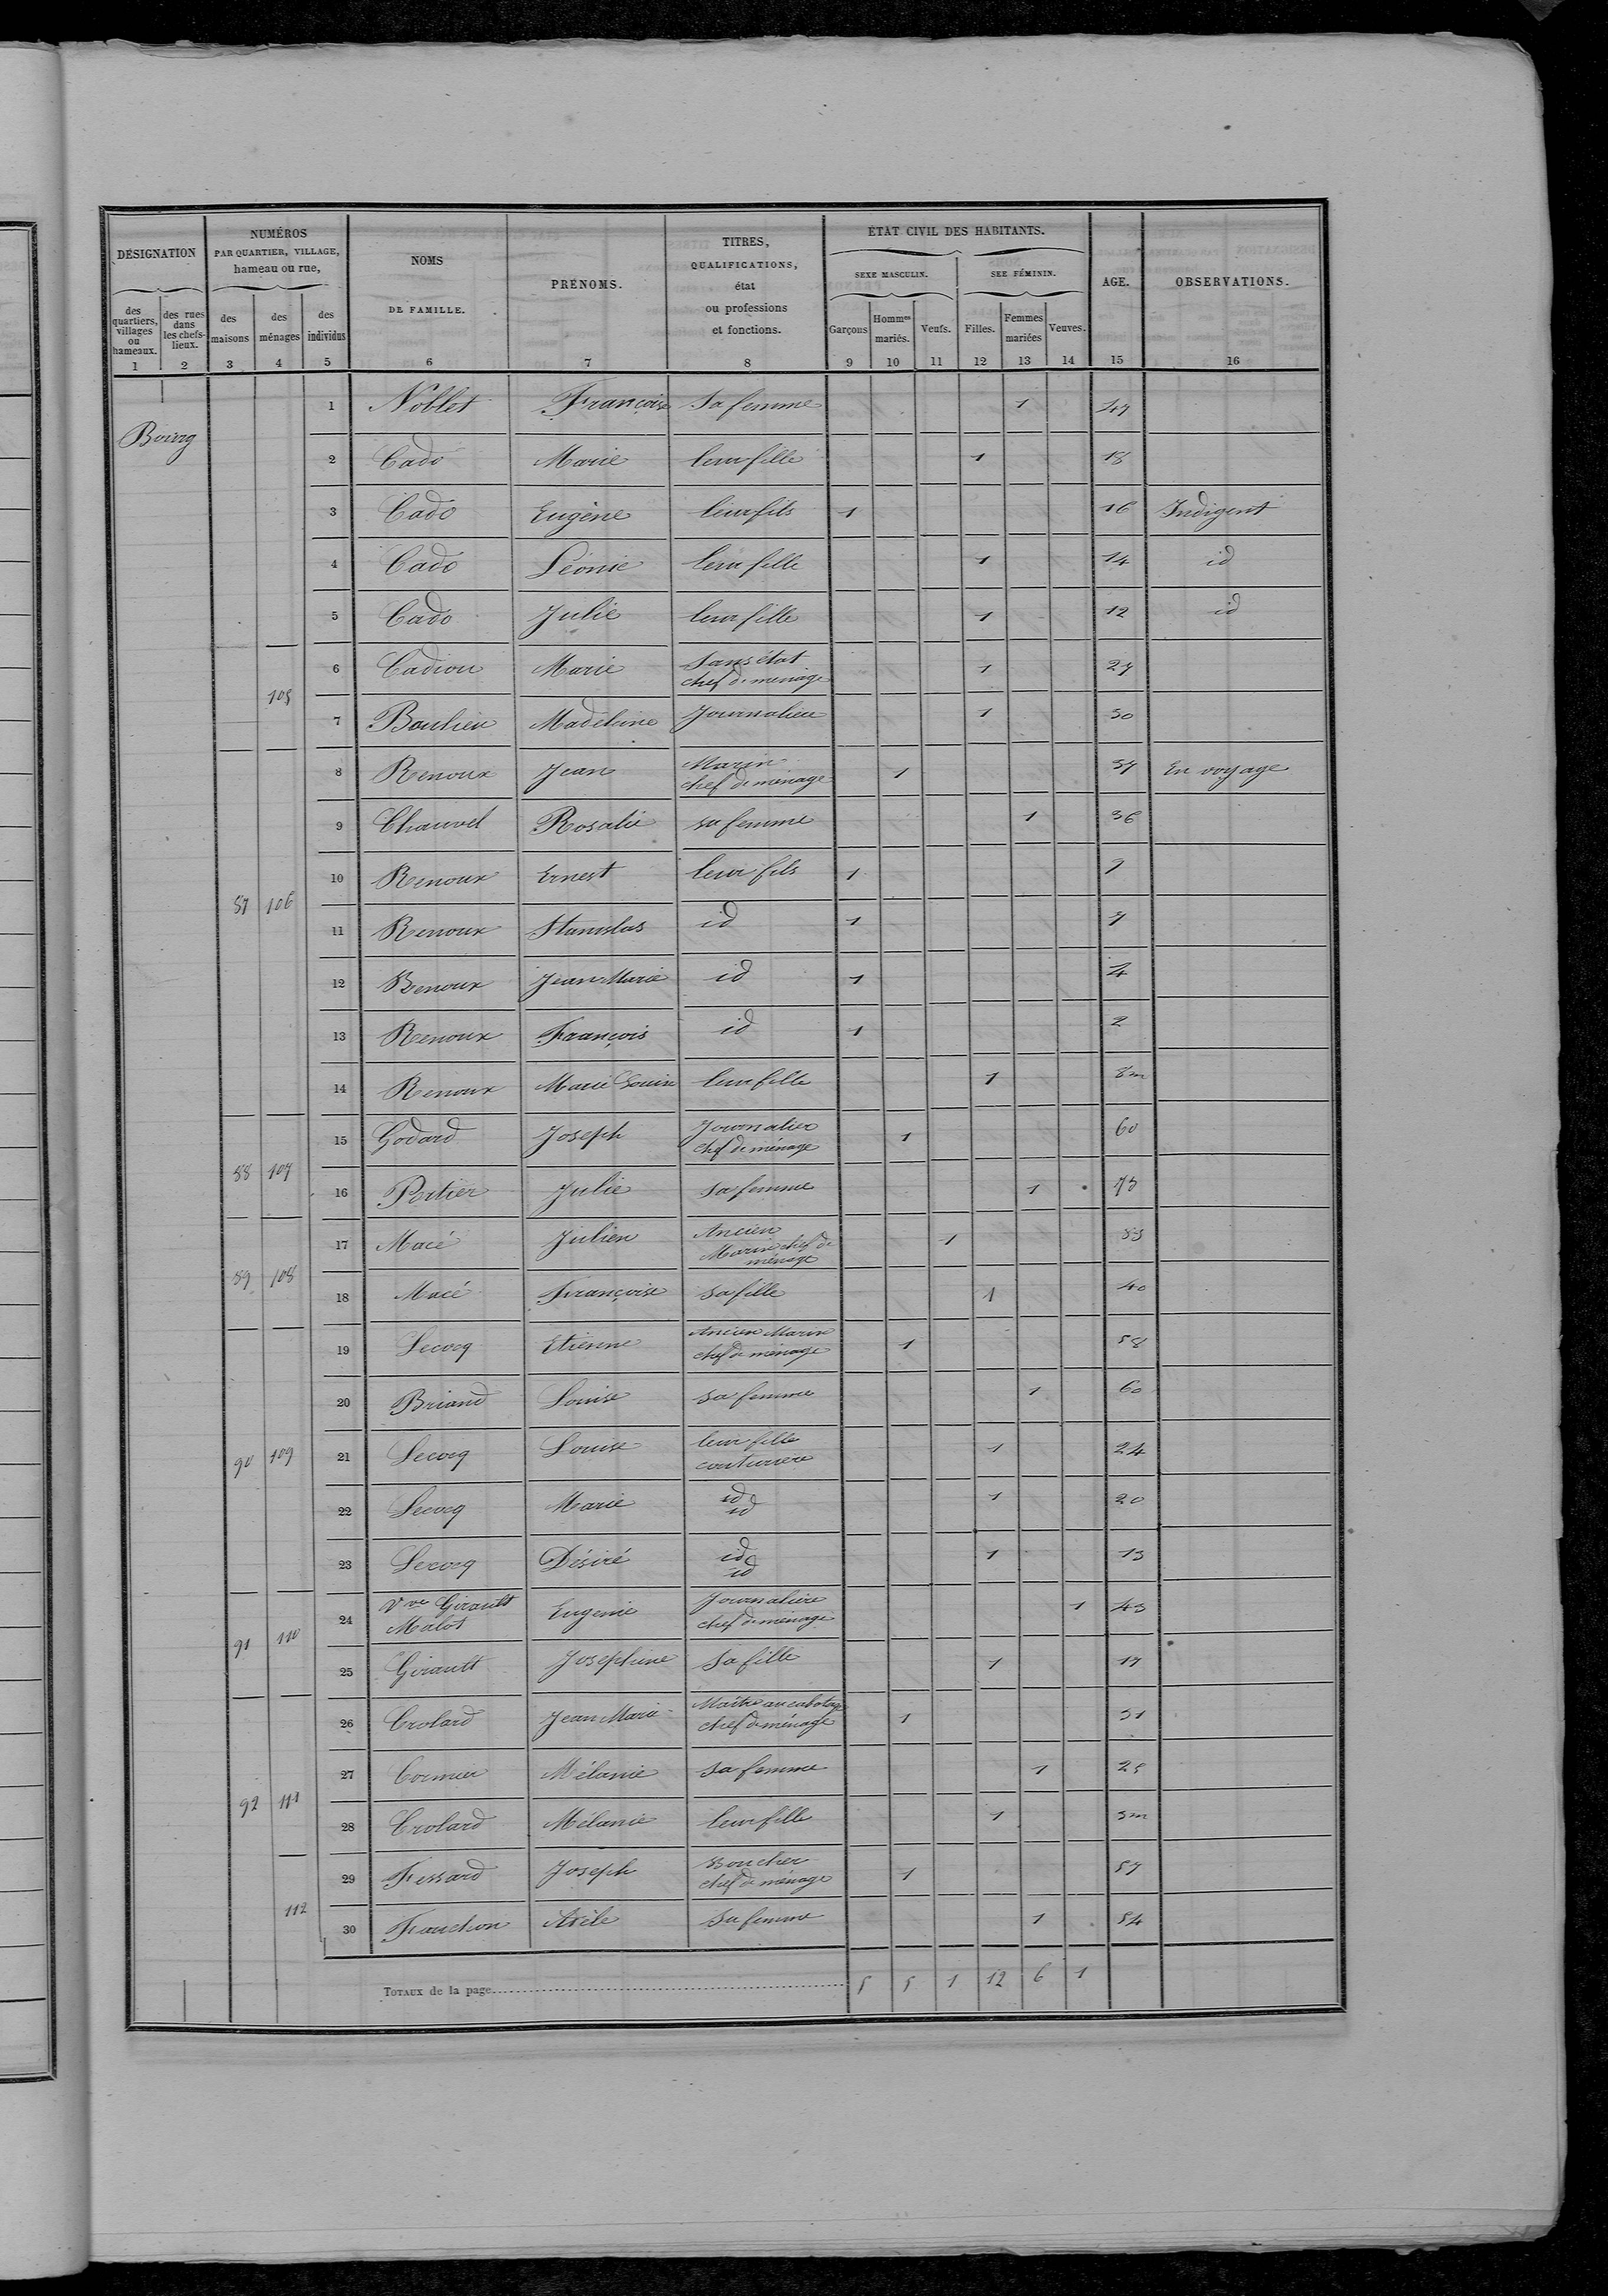 DÉSIGNATION
NUMÉROS
PAR QUARTIER, VILLAGE,
hameau ou rue,
NOMS
DE FAMILLE.
PRÉNOMS.
TITRES,
QUALIFICATIONS,
état
ou professions
et fonctions.
ÉTAT CIVIL DES HABITANTS.
SEXE MASCULIN.
SEE FÉMININ.
AGE.
OBSERVATIONS.
des quartiers, villages ou hameaux.
des rues dans les chefs-lieux.
des maisons
des ménages
des individus
Garçons
Hommes mariés.
Veufs.
Filles.
Femmes mariées
Veuves.
1 2 3 4 5 6 7 8 9 10 11 12 13 14 15 16
Bourg
1 Noblet Françoise Sa femme 1 47
2 Cado Marie leur fille 1 18
3 Cado Eugène leur fils 1 16 Indigent
4 Cado Léonie leur fille 1 14 id
5 Cado Julie leur fille 1 12 id
105
6 Cadiou Marie Sans état chef de ménage 1 27
7 Baulieu Madeleine Journalière 1 50
87 106
8 Renoux Jean Marin chef de ménage 1 37 En voyage
9 Chauvel Rosalie sa femme 1 36
10 Renoux Ernest leur fils 1 9
11 Renoux Stanislas id 1 7
12 Renoux Jean Marie id 1 4
13 Renoux François id 1 2
14 Renoux Marie Louise leur fille 1 8m
88 107
15 Godard Joseph Journalier chef de ménage 1 60
16 Portier Julie sa femme 1 73
89 108
17 Macé Julien Ancien Marin chef de ménage 1 83
18 Macé Françoise sa fille 1 40
90 109
19 Lecocq Etienne Ancien Marin chef de ménage 1 58
20 Briand Louise sa femme 1 60
21 Lecocq Louise leur fille couturière 1 24
22 Lecocq Marie id id 1 20
23 Lecocq Désiré id id 1 13
91 110
24 Vve Girault Malot Eugenie Journalière chef de ménage 1 43
25 Girault Josephine Sa fille 1 17
92 111
26 Crolard Jean Marie Maître au cabotage chef de ménage 1 31
27 Cormier Mélanie sa femme 1 25
28 Crolard Mélanie leur fille 1 3m
112
29 Fessard Joseph Boucher chef de ménage 1 57
30 Fauchon Adèle Sa femme 1 54
TOTAUX de la page 5 5 1 12 6 1